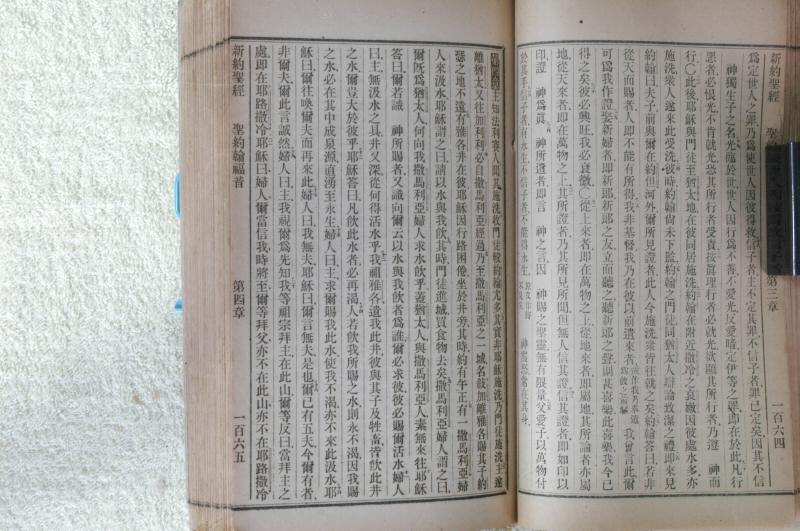 新約聖經 第三章 一百六四
爲定世人之罪乃爲使世人因彼得救信子者主不定其罪不信子者罪已定矣因其不信
神獨生子之名光臨於世世人因行爲不善不愛光反愛暗定伊等之罪即在於此凡行
惡者必恨光不肯就光恐其所行者受責按眞理行者必就光欲顯其所行者乃遵 神而
行〇此後耶穌與門徒至猶太地在彼同居施洗約翰在附近撒冷之哀嫩因彼處水多亦
施洗衆人遂來此受洗彼時約翰尚未下監約翰之門徒同猶太人辯論致潔之禮即來見
約翰曰夫子前與爾在約但河外爾所見證者此人今施洗衆皆往就之矣約翰答曰若非
從天而賜者人即不能有所得我非基督我乃在彼以前遣來者 我曾言此爾
可爲我作證娶新婦者即新郎新郎之友立而聽之聽新郎之聲則甚喜樂此喜樂我今已
得之矣彼必興旺我必衰微〇從上來者即在萬物之上從地來者即屬地其所論者亦屬
地從天來者即在萬物之上其所證者乃其所見所聞但無人信其證信其證者即如印以
印證 神爲眞 神所遣者即言 神之言因 神賜之聖靈無有限量父愛子以萬物付
於其手信子者有永生不信子者不能得永生 神震怒常在其身
主知法利賽人聞其施洗收門徒較約翰尤多其實非耶穌施洗乃門徒施洗主遂
離猶太又往加利利必自撒馬利亞經過乃至撒馬利亞之一城名敍加離雅各賜其子約
瑟之地不遠有雅各井在彼耶穌因行路困倦坐於井旁其時約有午正有一撒馬利亞婦
人來汲水耶穌謂之曰請以水與我飲其時門徒進城買食物去矣撒馬利亞婦人謂之曰
爾旣爲猶太人何向我撒馬利亞婦人求水飲乎蓋猶太人與撒馬利亞人素無來往耶穌
答曰爾若識 神所賜者又識向爾云以水與我飲者爲誰爾必求彼彼必賜爾活水婦人
曰主無汲水之具井又深從何得活水乎我祖雅各遺我此井彼與其子及牲畜皆飲此井
之水爾豈大於彼乎耶穌答曰凡飲此水者必再渴人若飲我所賜之水則永不渴因我賜
之水必在其中成泉源直湧至永生婦人曰主求賜我此水使我不渴亦不來此汲水耶
穌曰爾往喚爾夫而再來此婦人曰我無夫耶穌曰爾言無夫是也爾已有五夫今爾有者
非爾夫爾此言誠然婦人曰主我視爾爲先知我等祖宗拜主在此山爾等反曰當拜主之
處即在耶路撒冷耶穌曰婦人爾當信我時將至爾等拜父亦不在此山亦不在耶路撒冷
新約聖經 聖約翰福音 第四章 一百六五